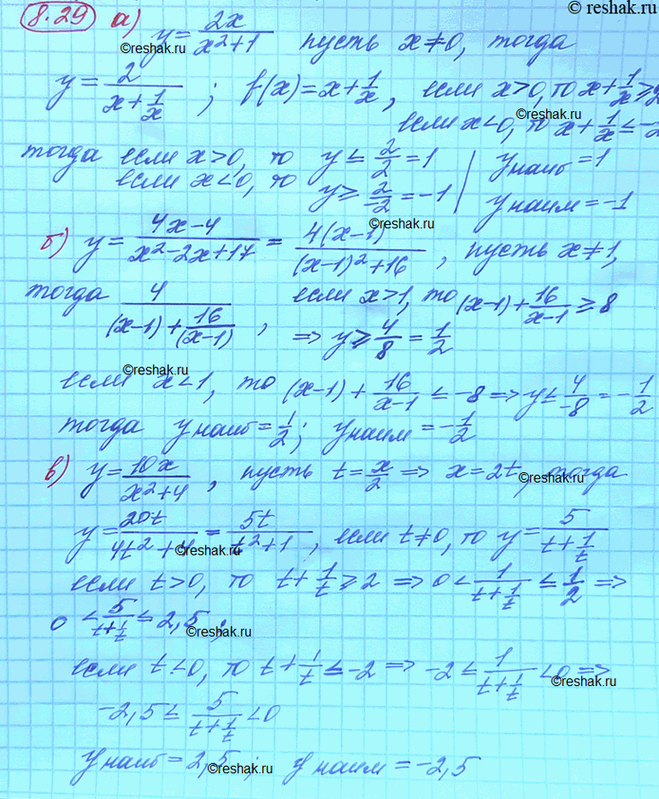 © reshak.ru
8.29 а) y = 2x/(x²+1) пусть x≠0, тогда
© reshak.ru
y = 2/(x+1/x) ; f(x) = x+1/x, если x>0, то x+1/x ≥ 2
если x<0, то x+1/x ≤ -2
тогда если x>0, то y ≤ 2/2 = 1 | y наиб = 1
если x<0, то y ≥ 2/-2 = -1 | y наим = -1
© reshak.ru
б) y = (4x-4)/(x²-2x+17) = 4(x-1)/((x-1)²+16), пусть x≠1,
тогда 4/((x-1)+16/(x-1)), если x>1, то (x-1)+16/(x-1) ≥ 8
⇒ y ≥ 4/8 = 1/2
© reshak.ru
если x<1, то (x-1)+16/(x-1) ≤ -8 ⇒ y ≤ 4/-8 = -1/2
тогда y наиб = 1/2; y наим = -1/2
в) y = 10x/(x²+4), пусть t = x/2 ⇒ x = 2t, тогда
© reshak.ru
y = 20t/(4t²+4) = 5t/(t²+1), если t≠0, то y = 5/(t+1/t)
© reshak.ru
если t>0, то t+1/t ≥ 2 ⇒ 0 < 1/(t+1/t) ≤ 1/2 ⇒
0 < 5/(t+1/t) ≤ 2,5 ;
© reshak.ru
если t<0, то t+1/t ≤ -2 ⇒ -2 ≤ 1/(t+1/t) < 0 ⇒
© reshak.ru
-2,5 ≤ 5/(t+1/t) < 0
y наиб = 2,5; y наим = -2,5
© reshak.ru